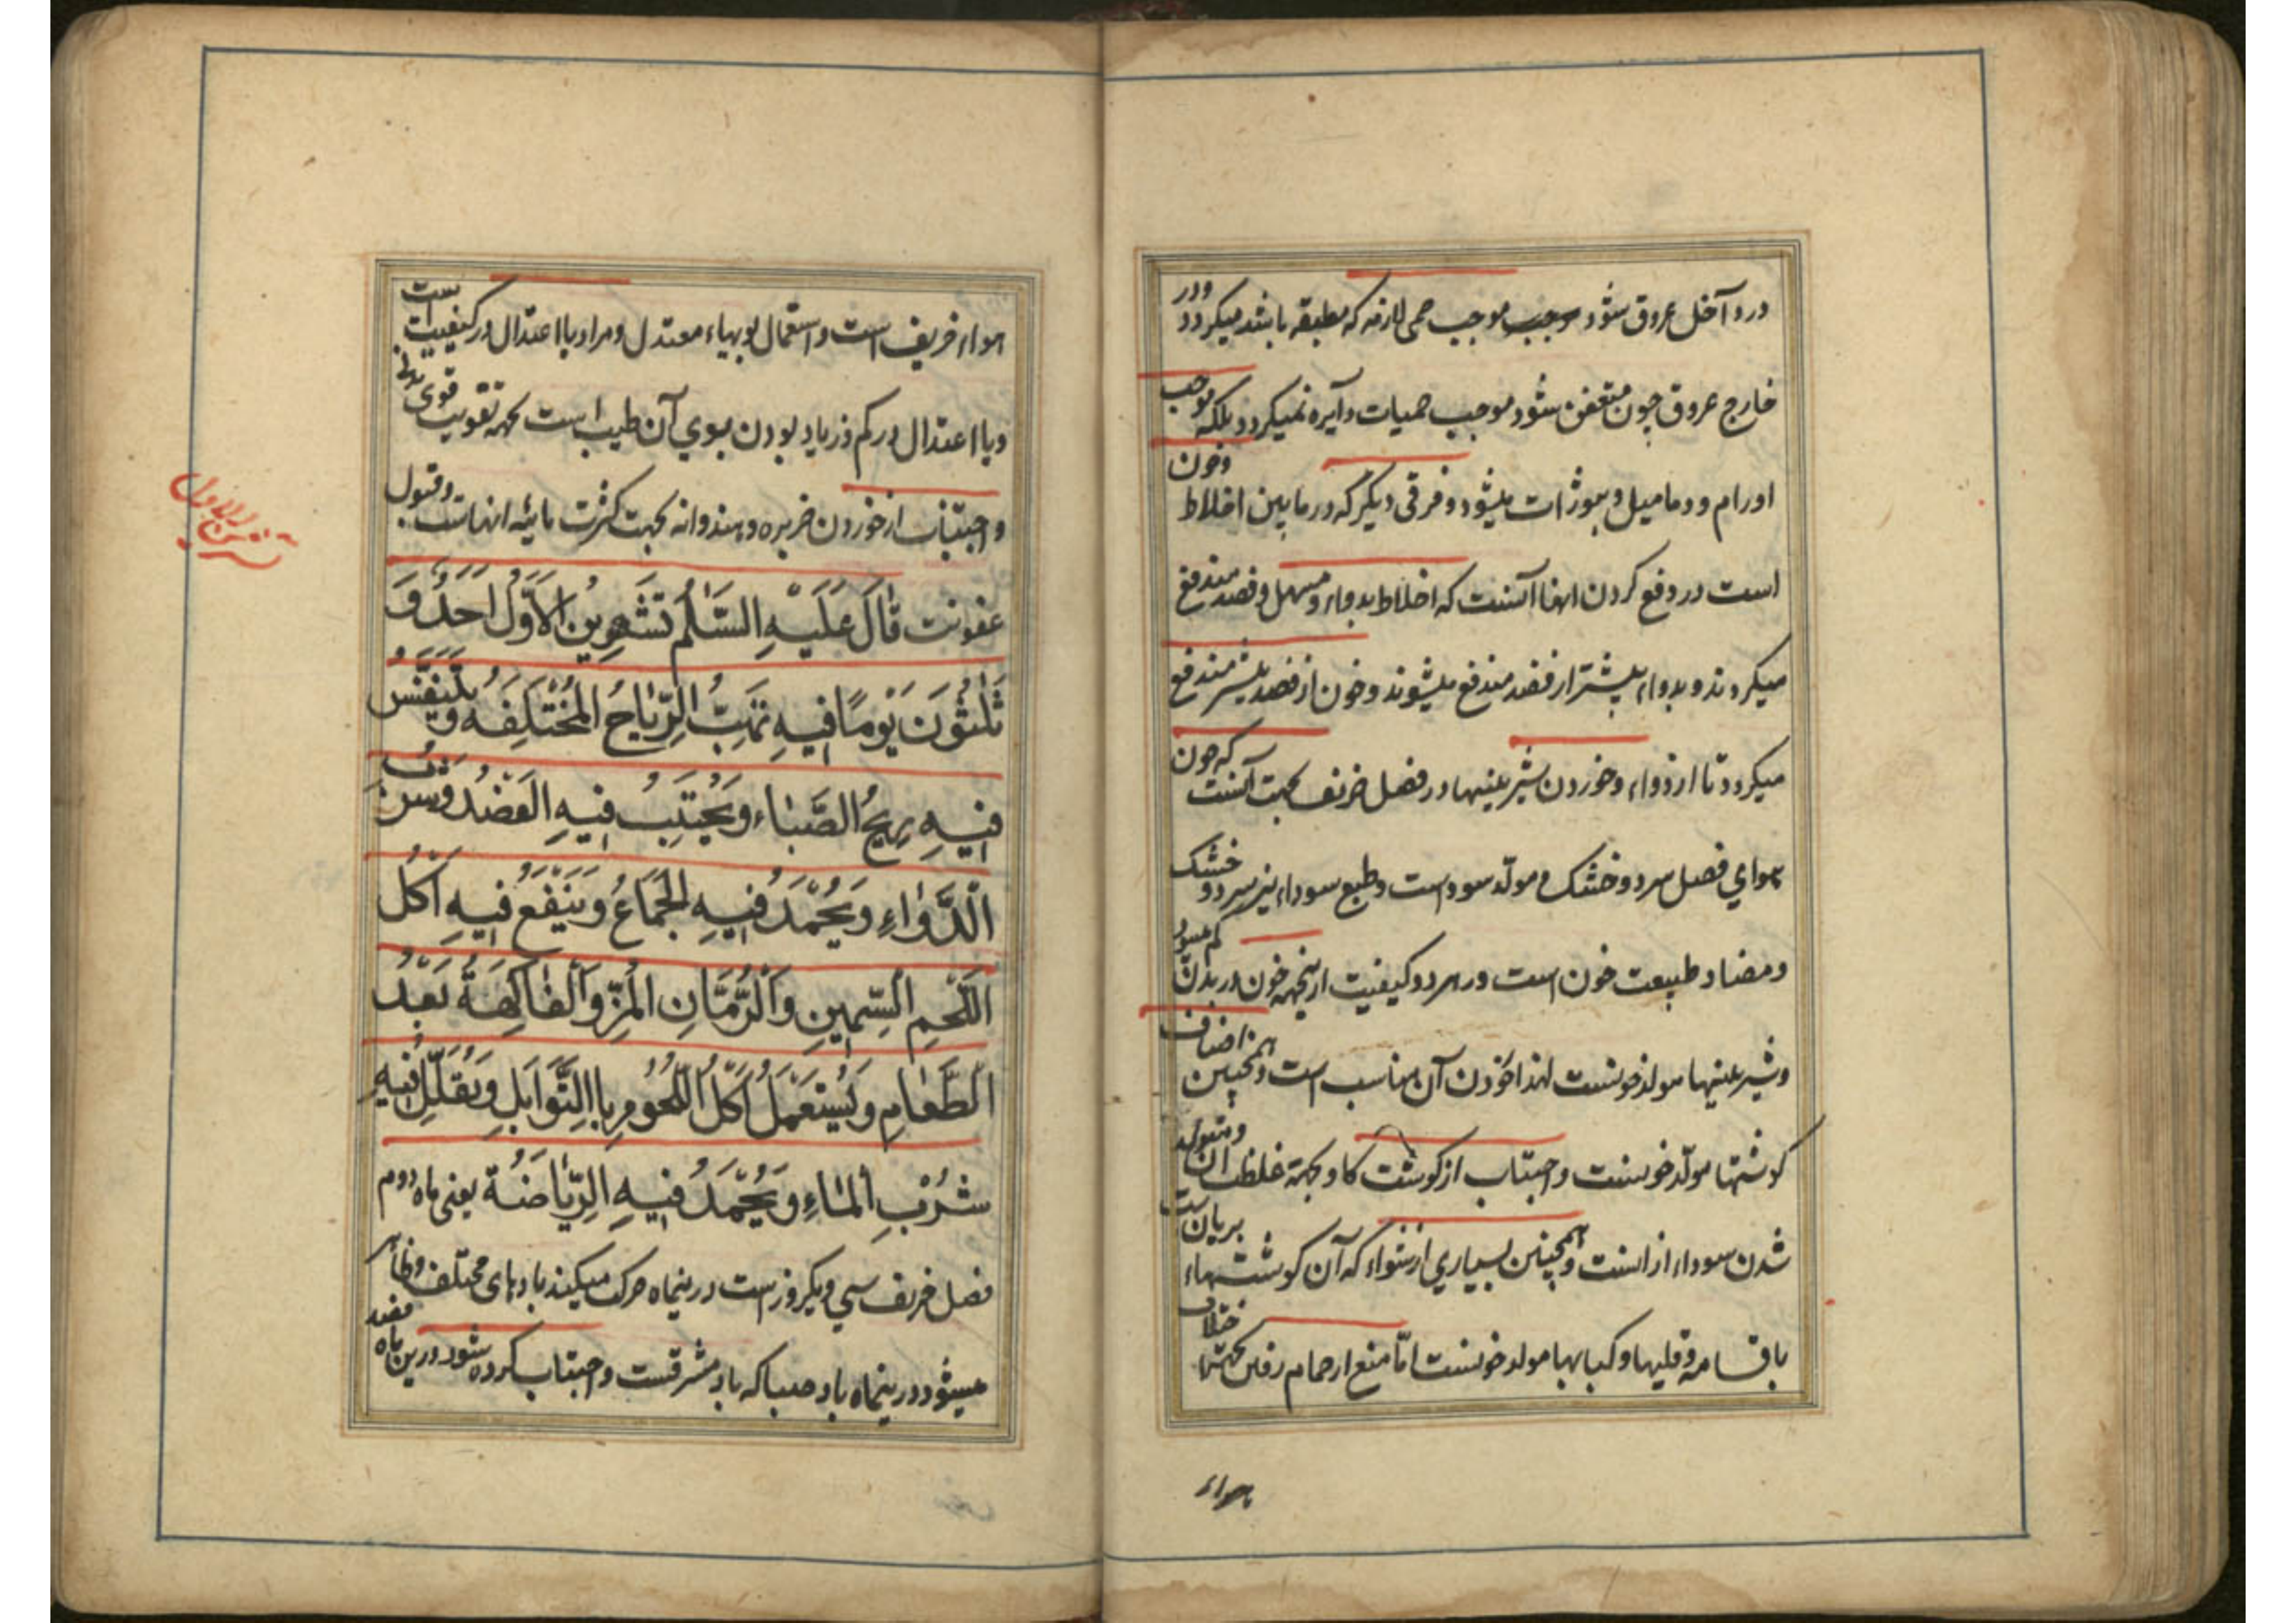 در داخل عروق شود موجب موجب حمی لازمه که مطبقه باشد میکردد ودر
خارج عروق چون متعفن شود موجب حمیات دآیره نمیکردد بلکه موجب
اورام و دمامیل و بثورات میشود و فرقی دیکر که در مابین اخلاط وخون
است در دفع کردن انها آنست که اخلاط بدواء مسهل وفصد مندفع
میکردند و بدواء بیشتر از فصد مندفع میشوند و خون از فصد بیشتر مندفع
میکردد تا از دواء و خوردن شیرینیها در فصل خریف بجهت آنست که چون
هوای فصل سرد و خشک و مولد سوداست و طبع سوداء نیز سرد و خشک
ومضاد طبیعت خون است در هر دو کیفیت ازینجهه خون در بدن کم میشود
وشیرینیها مولد خونست لهذا خوردن آن مناسب است وهمچنین اصناف
کوشتها مولد خونست واجتناب از کوشت کاو بجهة غلظت آن و متولد
شدن سوداء از انست و همچنین بسیاری از شواء که آن کوشتهاء بریان است
باقسامه و قلیها و کبابها مولد خونست اما منع از حمام رفتن بجهة اختلاف
هواء
هواء خریف است واستعمال بویهاء معتدل ومراد با اعتدال در کیفیت است
ویا اعتدال در کم وزیاد بودن بوی آن طیب است بجهه تقویت قوی
واجتناب از خوردن خربزه و هندوانه بجهت کثرت مائیه انهاست وقبول
عفونت قَالَ عَلَيْهِ السَّلَمُ تَشْرِينُ الْأَوَّلُ أَحَدٌ وَ
ثَلٰثُونَ يَوْمًا فِيهِ تَهُبُّ الرِّيَاحُ الْمُخْتَلِفَه وَيَتَنَفَّسُ
فِيهِ رِيحُ الصَّبَاء وَيُجْتَنَبُ فِيهِ الْفَصْدُ وَشُرْبُ
الدَّوَاءِ وَيُحْمَدُ فِيهِ الْجِمَاعُ وَيَنْفَعُ فِيهِ أَكْلُ
اللَّحْمِ السَّمِينِ وَالرُّمَّانِ الْمُزِّ وَالْفَاكِهَةُ بَعْدَ
الطَّعَامِ وَيُسْتَعْمَلُ أَكْلُ اللُّحُومِ بِاالتَّوَابِلِ وَيُقَلَّلُ فِيهِ
شُرْبُ الْمَاءِ وَيُحْمَدُ فِيهِ الرِّيَاضَةُ یعنی ماه دوم
فصل خریف سی ویکروز است درینماه حرکت میکیند بادهای مختلف وظاهر
میشود درینماه باد صبا که باد مشرقست واجتناب کرده شود درین ماه فصد
تشرین الاول